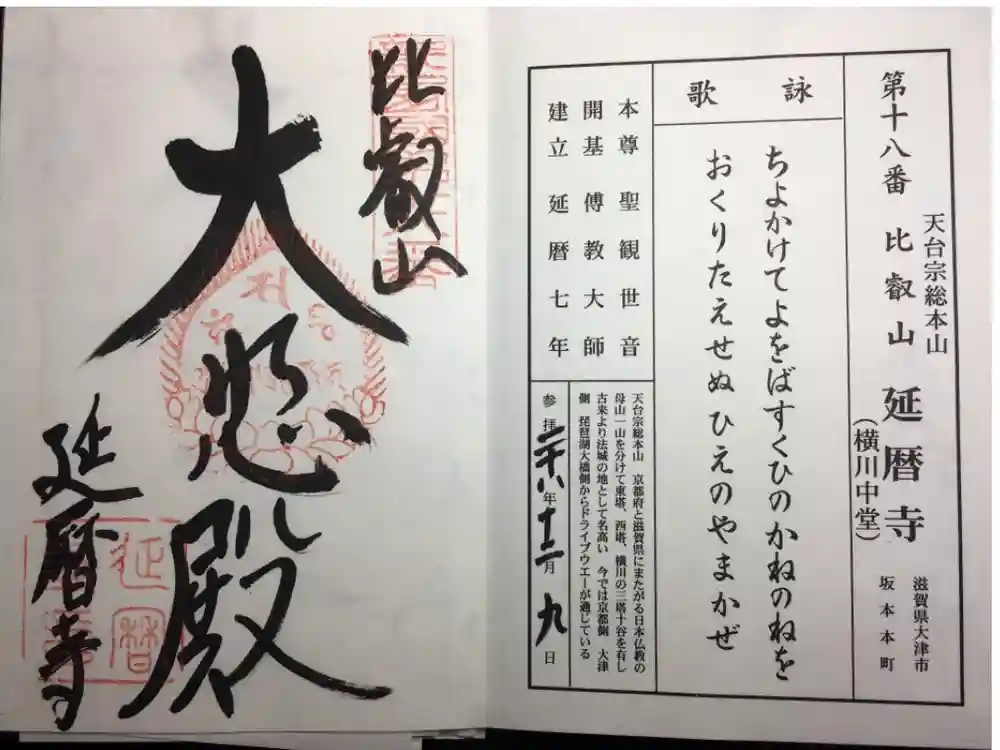 天台宗総本山
第十八番 比叡山 延暦寺
(横川中堂)
滋賀県大津市
坂本本町
詠歌
ちよかけてよをばすくひのかねのねを
おくりたえせぬひえのやまかぜ
本尊 聖観世音
開基 傳教大師
建立 延暦七年
天台宗総本山 京都府と滋賀県にまたがる日本仏教の
母山一山を分けて東塔、西塔、横川の三塔十谷を有し
古来より法城の地として名高い 今では京都側 大津
側 琵琶湖大橋側からドライブウエーが通じている
参拝二十八年十二月九日
比叡山
大悲殿
延暦寺
延暦